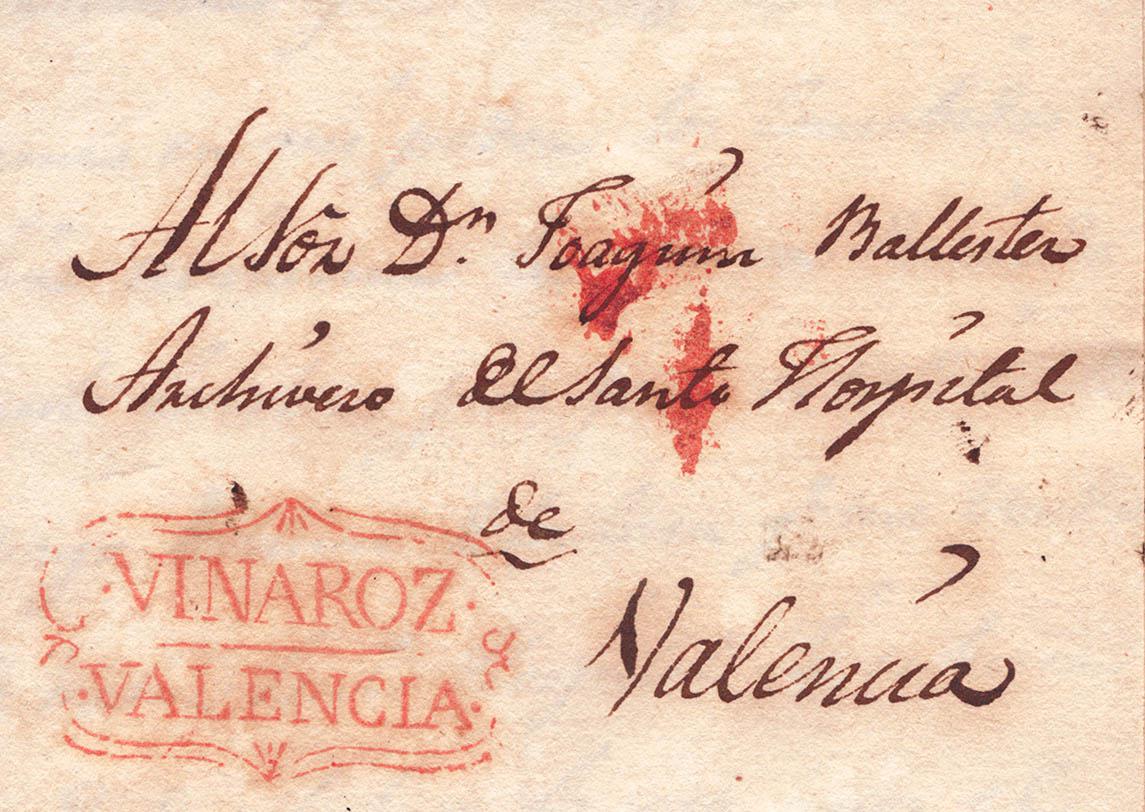 Al Sõr Dn. Joaquin Ballester
Archivero del Santo Hospital
de
Valencia
·VINAROZ·
·VALENCIA·